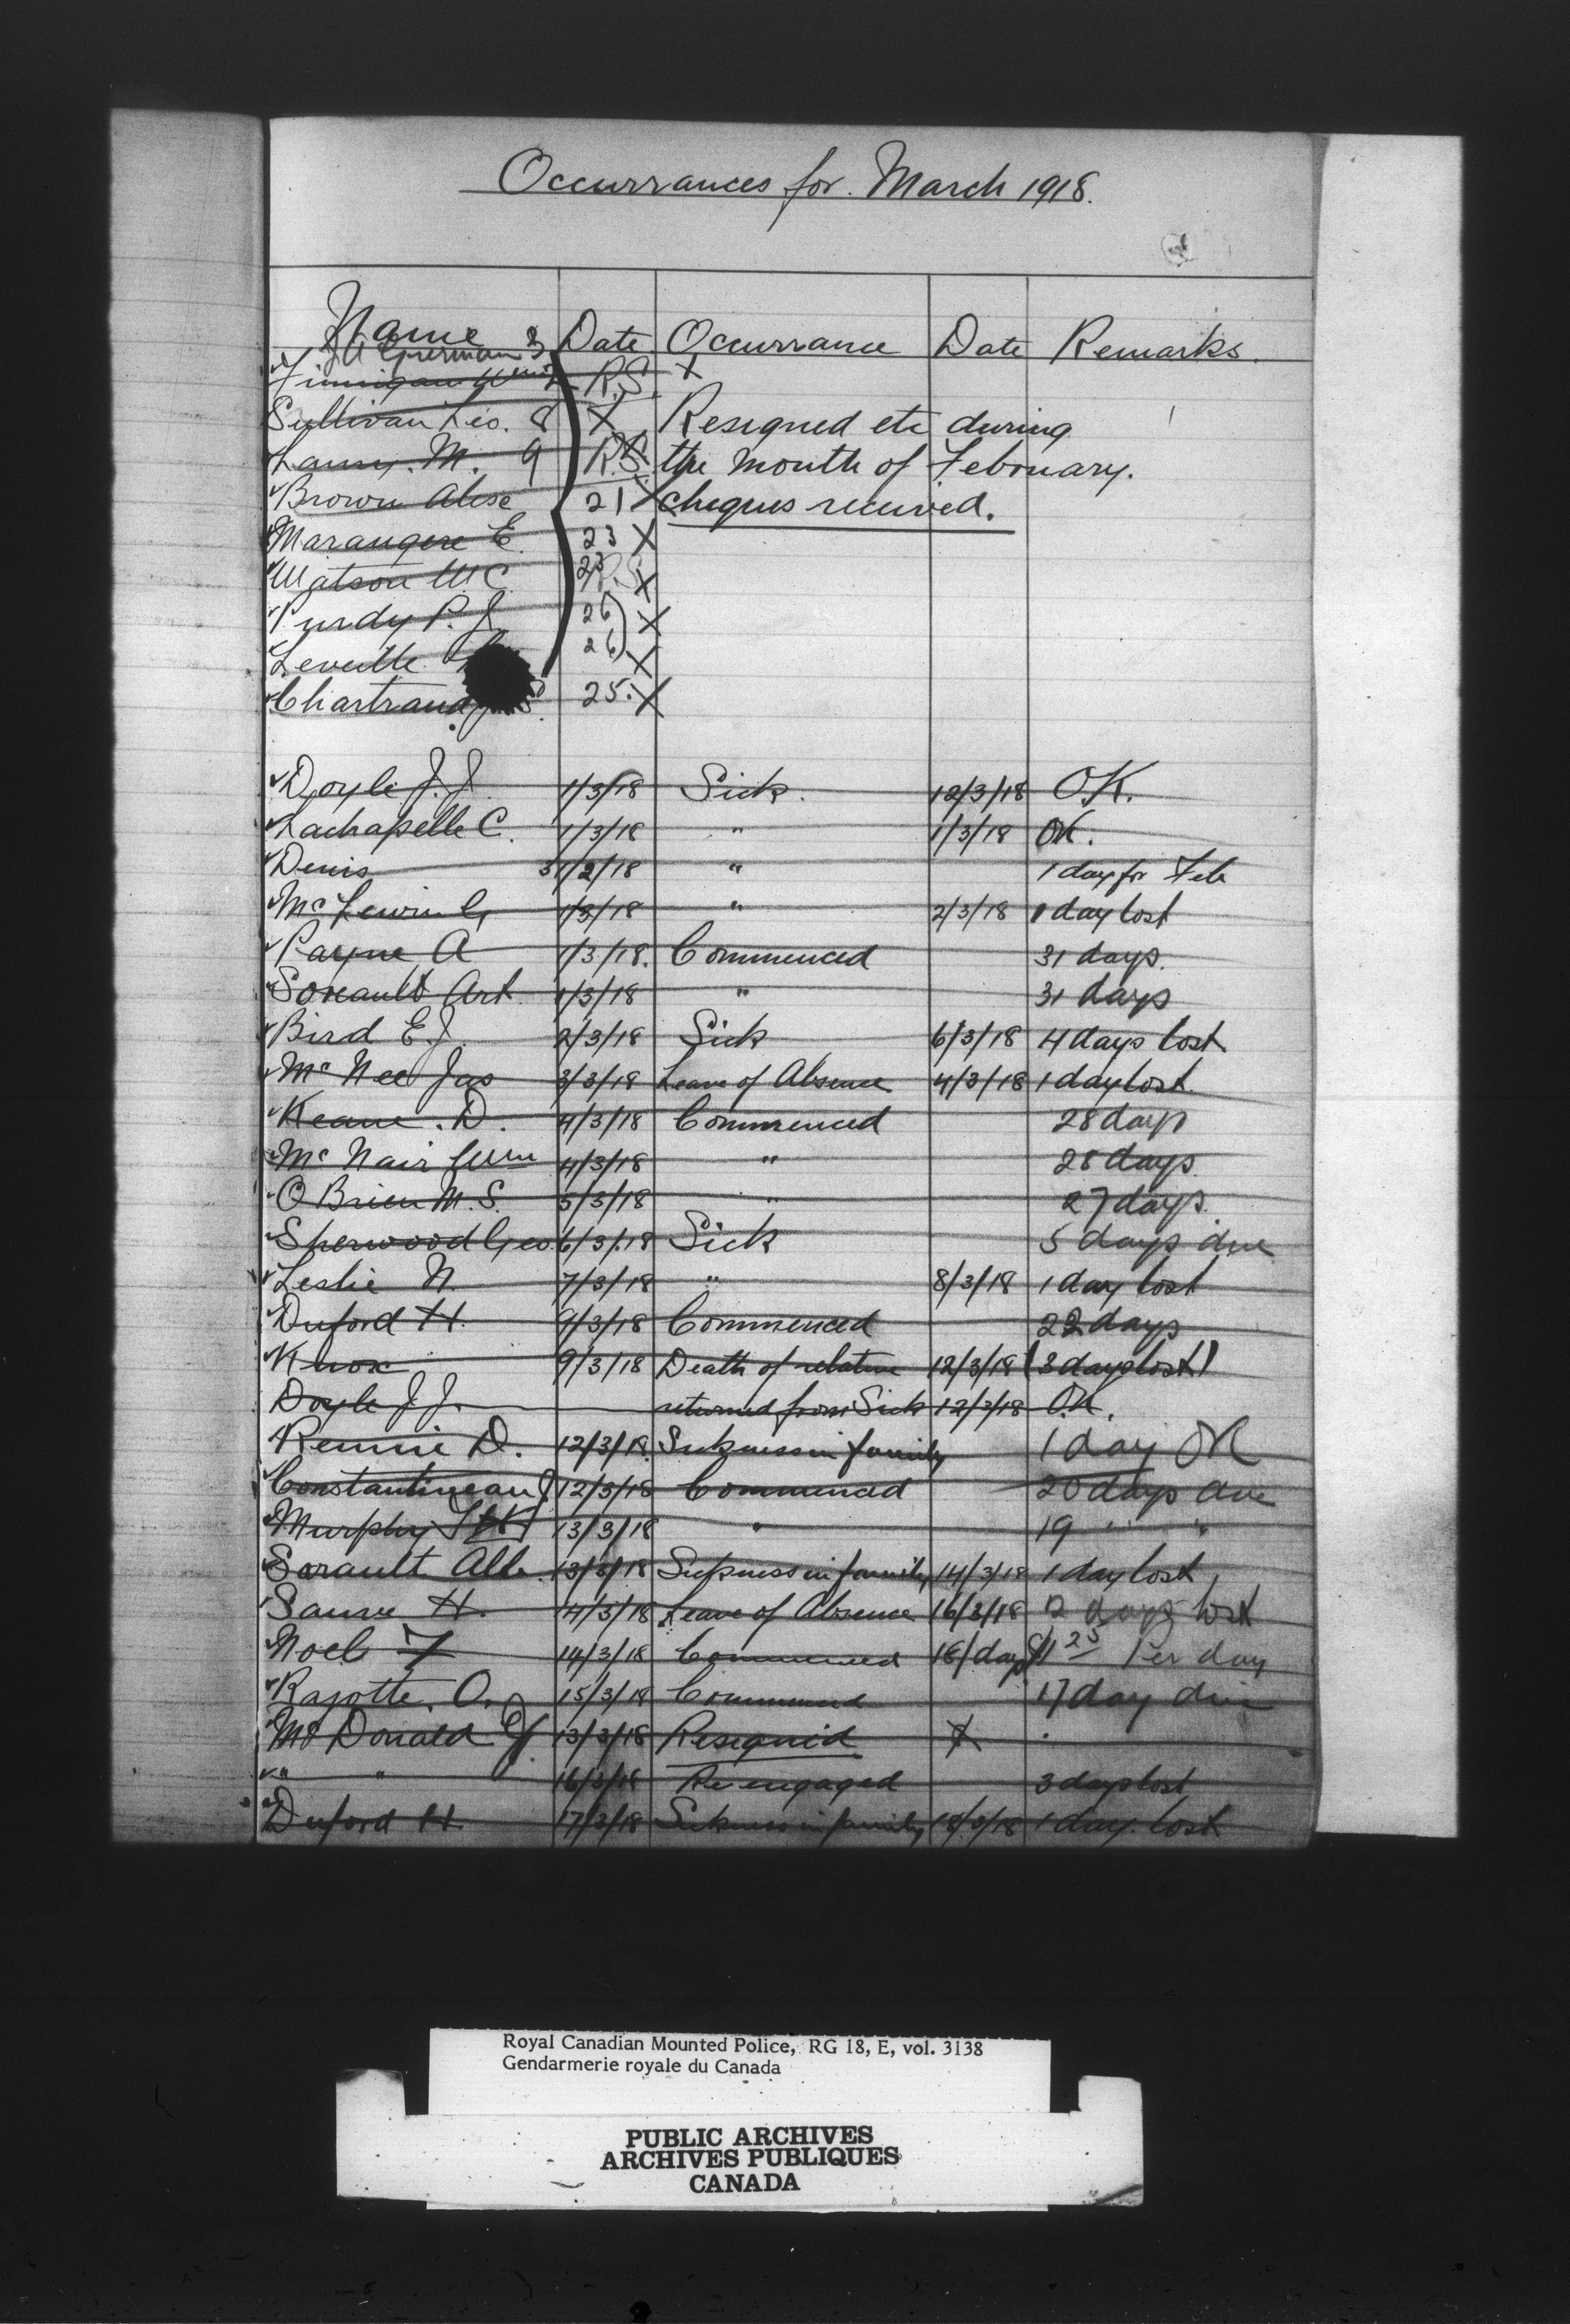 Occurrances for March 1918.
Name Date Occurrance Date Remarks.
3
Finnigan Wm 7 R.S. X
Sullivan Leo. 8 X Resigned etc during
M. 9 R.S. the month of Febuary.
Brown 21 X cheques received.
Marangere E. 23 X
Watson W C 23 R.S. X
Purdy P. J. 26 X
Leveille 26 X
Chartrand 25. X
Doyle J. J. 1/3/18 Sick. 12/3/18 O.K.
Lachapelle C. 1/3/18 " 1/3/18 OK.
Denis 31/2/18 " 1 day for Feb
1/3/18 " 2/3/18 1 day lost
Payne A 1/3/18. Commenced 31 days.
Art 1/3/18 " 31 days
Bird E. J. 2/3/18 Sick 6/3/18 4 days lost
McNee Jas 3/3/18 Leave of Absence 4/3/18 1 day lost
Keane. D. 4/3/18 Commenced 28 days
McNair Wm 4/3/18 " 28 days
O Brien M. S. 5/3/18 " 27 days.
Sherwood Geo. 6/3/18 Sick 5 days due
Leslie N. 7/3/18 " 8/3/18 1 day lost
Duford H. 9/3/18 Commenced 22 days
Knox 9/3/18 Death of relative 12/3/18 (3 days lost)
Doyle J. J. returned from Sick 12/3/18 O.K.
Rennie D. 12/3/18. Sickness in family 1 day OK
Constantineau J. 12/3/18 Commenced 20 days due
Murphy 13/3/18 " 19 " "
Sarault Alb. 13/3/18 Sickness in family 14/3/18 1 day lost
Sauve H. 14/3/18 Leave of Absence 16/3/18 2 days lost
Noel F 14/3/18 Commenced 18/days $1 25 Per day
Rajotte. O. 15/3/18 Commenced 17 day due
McDonald 13/3/18 Resigned X
" " 16/3/18 Re engaged 3 days lost
Duford H. 17/3/18 Sickness in family 18/3/18 1 day. lost
Royal Canadian Mounted Police, RG 18, E, vol. 3138
Gendarmerie royale du Canada
PUBLIC ARCHIVES
ARCHIVES PUBLIQUES
CANADA